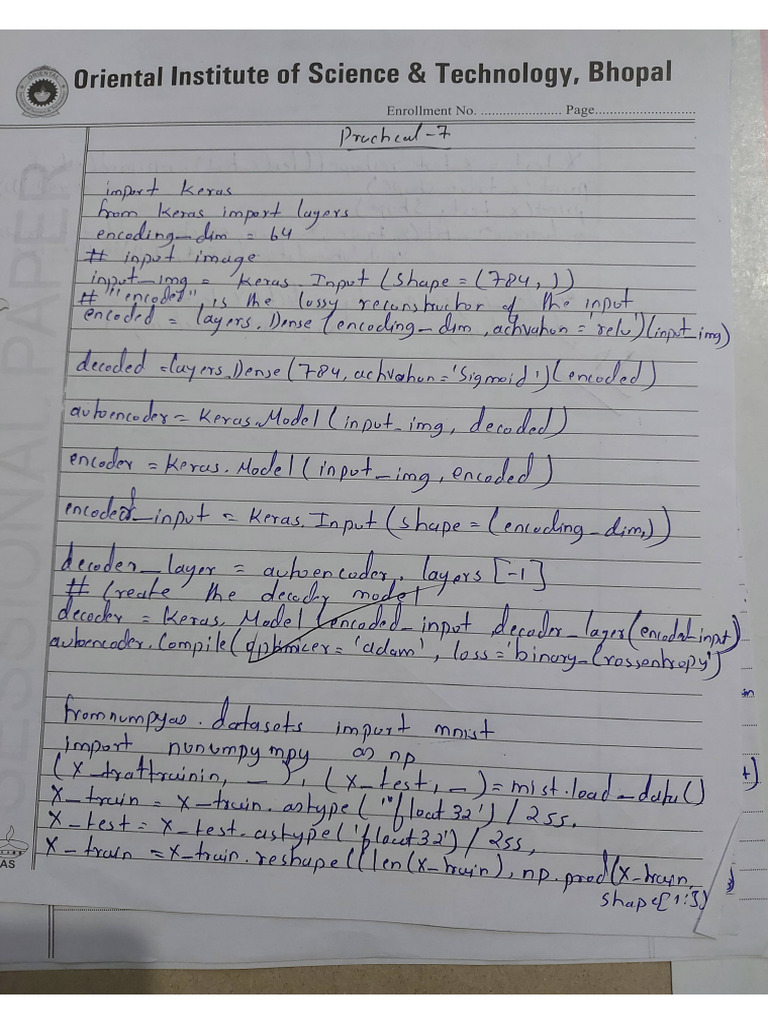 Oriental Institute of Science & Technology, Bhopal
Enrollment No. ...................... Page...........................
Practical-7
import keras
from keras import layers
encoding_dim = 64
# input image
input_img = keras.Input(shape=(784,))
# "encoded", is the lossy reconstructor of the input
encoded = layers.Dense(encoding_dim, activation='relu')(input_img)
decoded = layers.Dense(784, activation='sigmoid')(encoded)
autoencoder = keras.Model(input_img, decoded)
encoder = keras.Model(input_img, encoded)
encoded_input = keras.Input(shape=(encoding_dim,))
decoder_layer = autoencoder.layers[-1]
# Create the decoder model
decoder = keras.Model(encoded_input, decoder_layer(encoded_input)
autoencoder.compile(optimizer='adam', loss='binary_crossentropy')
fromnumpyas.datasets import mnist
import nunumpympy as np
(x_trattrainin, _), (x_test, _) = mist.load_data()
x_train = x_train.astype('float32') / 255.
x_test = x_test.astype('float32') / 255.
x_train = x_train.reshape((len(x_train), np.prod(x_train.
shape[1:])
SESSIONAL PAPER
AS